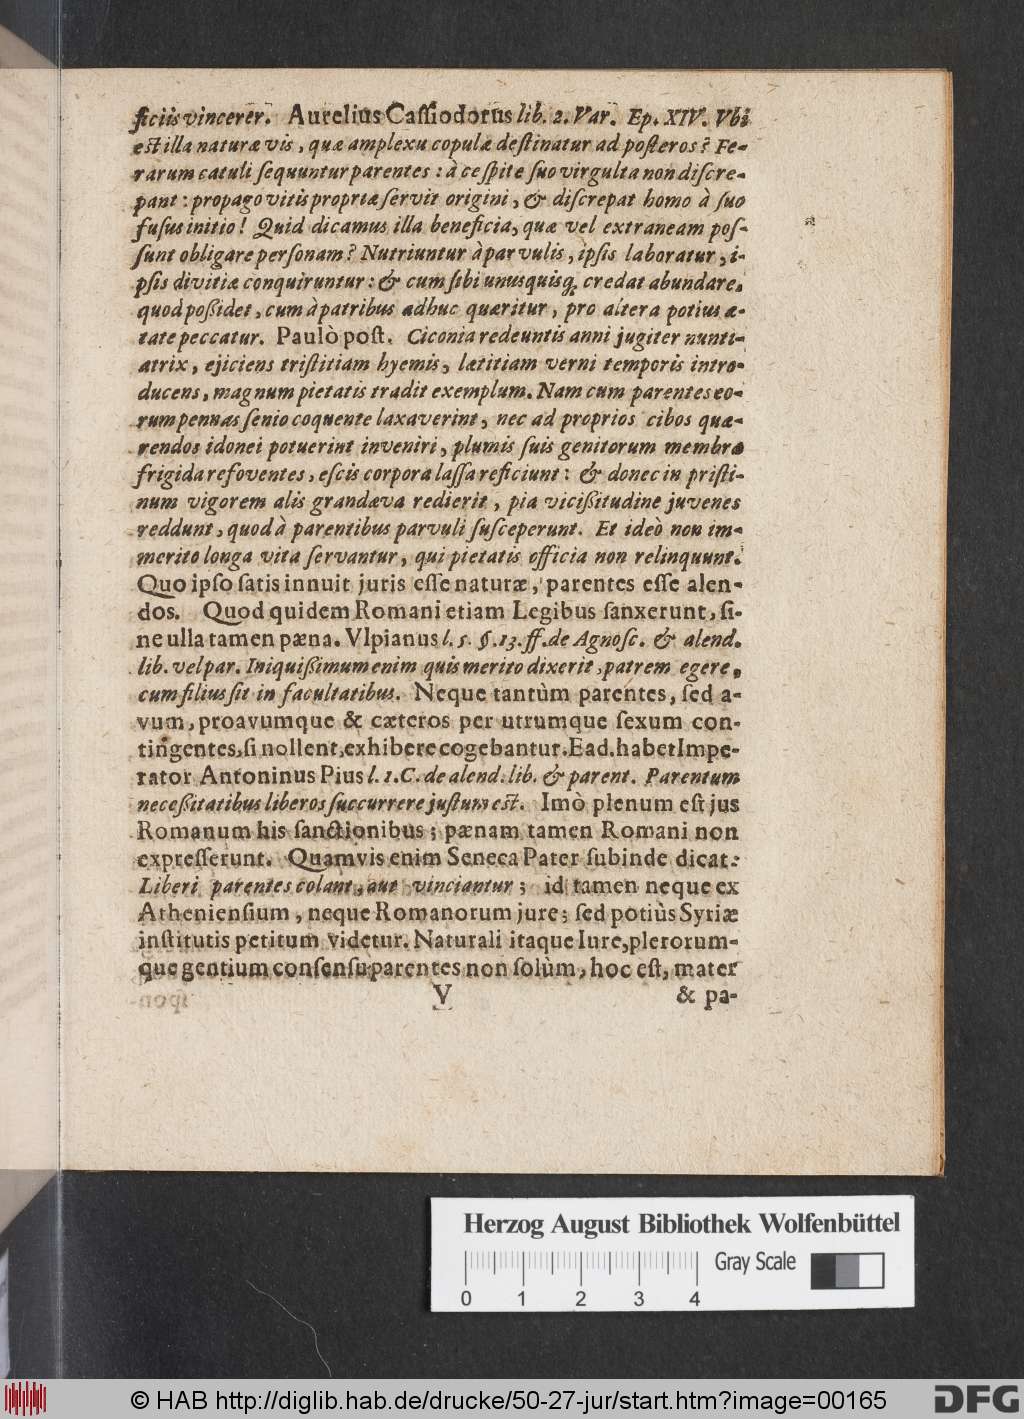 ficiis vincerer. Aurelius Cassiodorus lib. 2. Var. Ep. XIV. Vbi
est illa naturæ vis, quæ amplexu copulæ destinatur ad posteros? Fe-
rarum catuli sequuntur parentes: à cespite suo virgulta non discre-
pant: propago vitis propriæ servit origini, & discrepat homo à suo
fusus initio! Quid dicamus illa beneficia, quæ vel extraneam pos-
sunt obligare personam? Nutriuntur à parvulis, ipsis laboratur, i-
psis divitiæ conquiruntur: & cum sibi unusquisq; credat abundare,
quod poßidet, cum à patribus adhuc quæritur, pro altera potius æ-
tate peccatur. Paulò post. Ciconia redeuntis anni jugiter nunti-
atrix, ejiciens tristitiam hyemis, lætitiam verni temporis intro-
ducens, magnum pietatis tradit exemplum. Nam cum parentes eo-
rum pennas senio coquente laxaverint, nec ad proprios cibos quæ-
rendos idonei potuerint inveniri, plumis suis genitorum membra
frigida refoventes, escis corpora lassa reficiunt: & donec in pristi-
num vigorem alis grandæva redierit, pia vicißitudine juvenes
reddunt, quod à parentibus parvuli susceperunt. Et ideò non im-
merito longa vita servantur, qui pietatis officia non relinquunt.
Quo ipso satis innuit juris esse naturæ, parentes esse alen-
dos. Quod quidem Romani etiam Legibus sanxerunt, si-
ne ulla tamen pæna. Vlpianus l. 5. §. 13. ff. de Agnosc. & alend.
lib. vel par. Iniquißimum enim quis merito dixerit, patrem egere,
cum filius sit in facultatibus. Neque tantùm parentes, sed a-
vum, proavumque & cæteros per utrumque sexum con-
tingentes, si nollent, exhibere cogebantur. Ead. habet Impe-
rator Antoninus Pius l. 1. C. de alend. lib. & parent. Parentum
neceßitatibus liberos succurrere justum est. Imò plenum est jus
Romanum his sanctionibus; pænam tamen Romani non
expresserunt. Quamvis enim Seneca Pater subinde dicat:
Liberi parentes colant, aut vinciantur; id tamen neque ex
Atheniensium, neque Romanorum jure; sed potiùs Syriæ
institutis petitum videtur. Naturali itaque Iure, plerorum-
que gentium consensu parentes non solùm, hoc est, mater
V & pa-
Herzog August Bibliothek Wolfenbüttel
Gray Scale
0 1 2 3 4
© HAB http://diglib.hab.de/drucke/50-27-jur/start.htm?image=00165
DFG